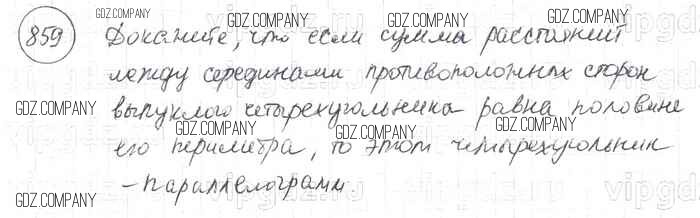 859 Докажите, что если сумма расстояний
между серединами противоположных сторон
выпуклого четырехугольника равна половине
его периметра, то этот четырехугольник
- параллелограмм
GDZ.COMPANY
GDZ.COMPANY
GDZ.COMPANY
GDZ.COMPANY
GDZ.COMPANY
GDZ.COMPANY
GDZ.COMPANY
GDZ.COMPANY
GDZ.COMPANY
GDZ.COMPANY
GDZ.COMPANY